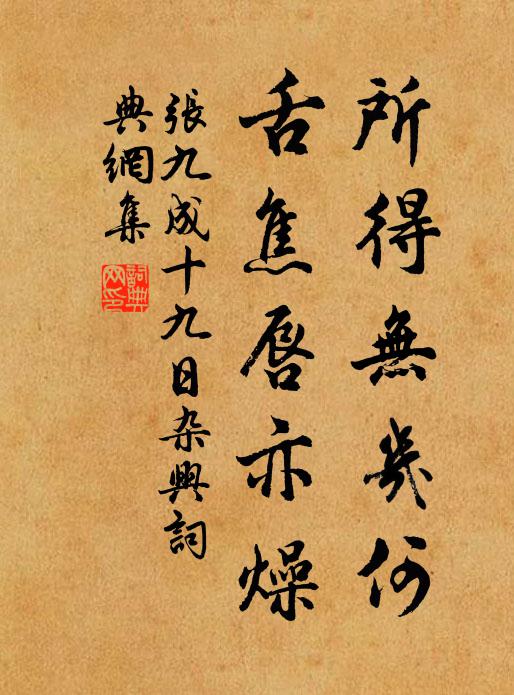 所得無幾何
舌焦唇亦燥
張九成十九日杂興詞
典網集
詞典網印